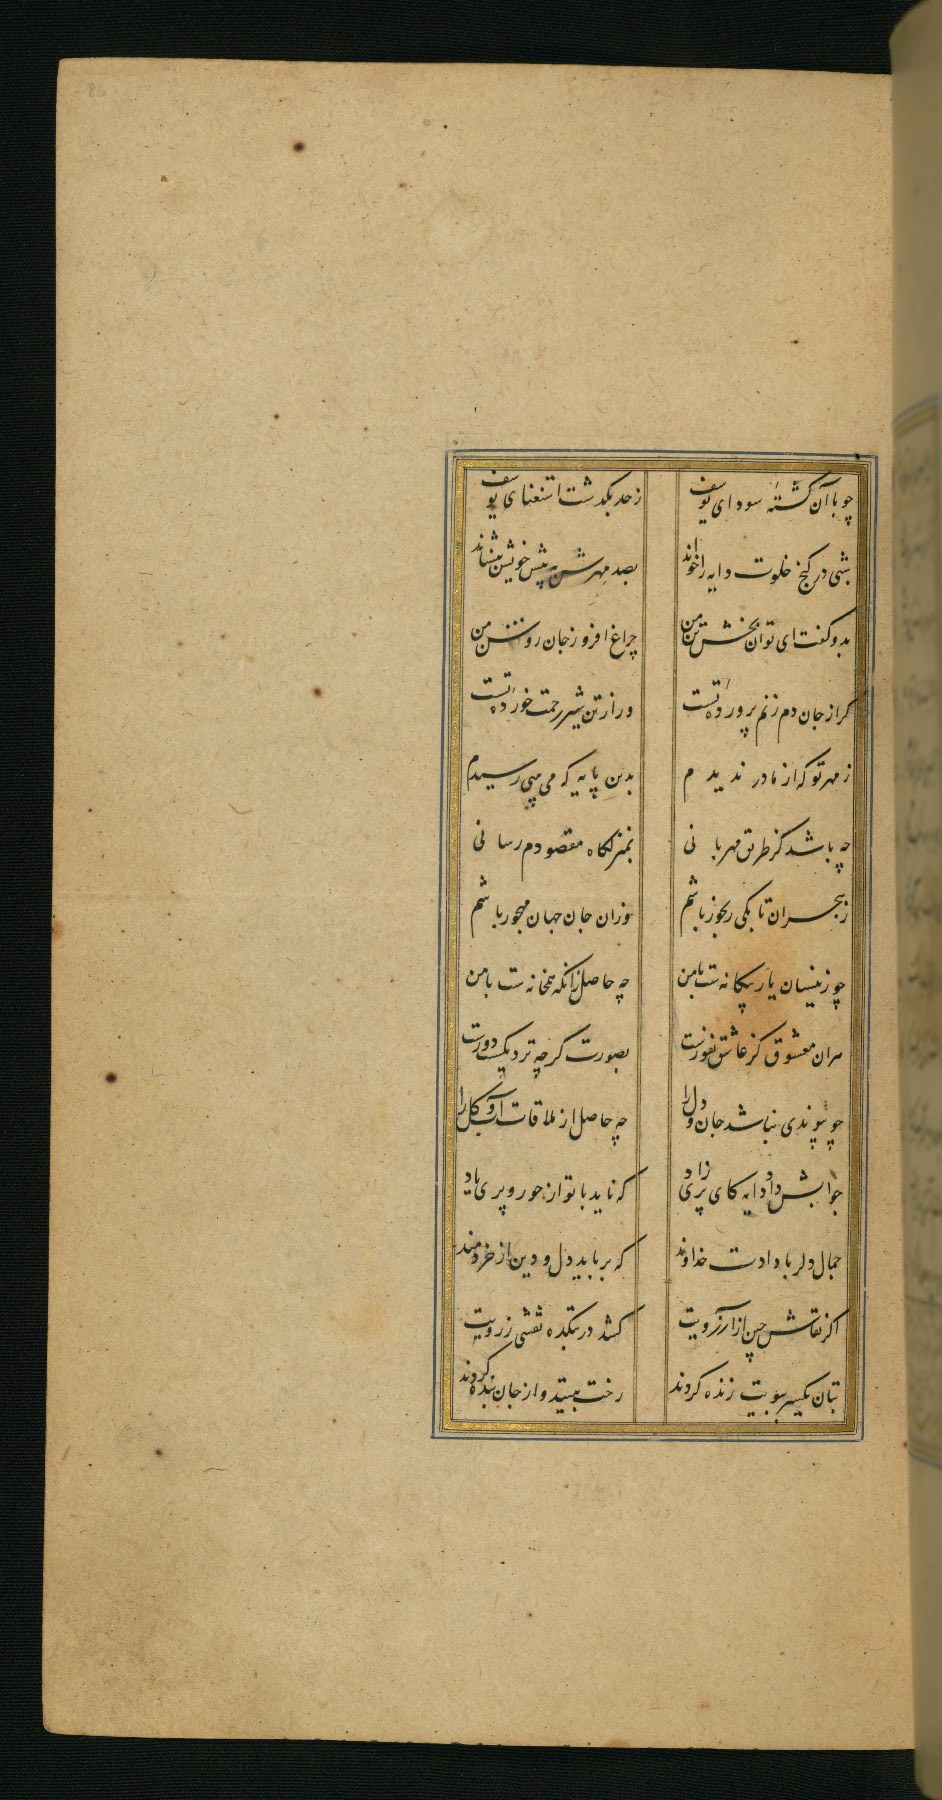 چو با آن کشته سودای یوسف زحد بکذشت استغنای یوسف
شبی در کنج خلوت دایه را خواند بصد مهرش به پیش خویش بنشاند
بدو کفت ای توان بخش تن من چراغ افروز جان روشن من
کر از جان دم زنم پرورده تست ور از تن شیر رحمت خورده تست
ز مهر تو که از مادر ندیدم بدین پایه که می بینی رسیدم
چه باشد کز طریق مهربانی بمنزلکاه مقصودم رسانی
ز هجران تا بکی رنجور باشم وزان جان جهان مهجور باشم
چو زینسان یار بیکانه ست با من چه حاصل زانکه همخانه ست با من
هران معشوق کز عاشق نفورست بصورت کرچه نزدیکست دورست
چو پیوندی نباشد جان و دل را چه حاصل از ملاقات آب و کل را
جوابش داد دایه کای پری زاد که ناید با تو از حور و پری یاد
جمال دلربا دادت خداوند که برباید دل و دین از خردمند
اکر نقاش چین از آرزویت کشد در بتکده نقشی ز رویت
بتان یکسر ببویت زنده کردند رخت بینند و از جان بنده کردند